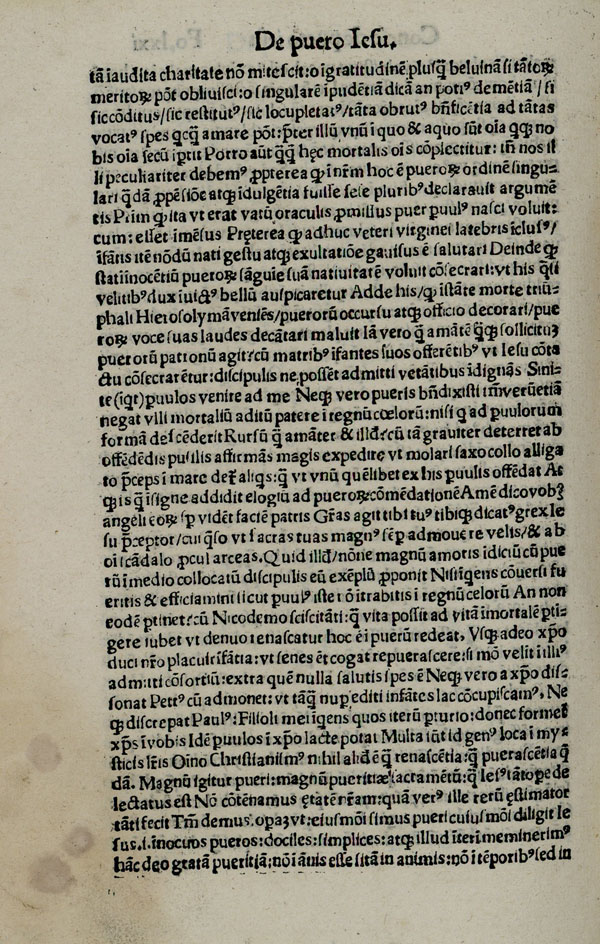 De puero Iesu.
tā īaudita charitate nō mitescit: o īgratitudinē, plusq̄ beluinā si tātoꝝ
meritoꝝ pōt obliuisci: o singularē īpudētiā dicā an potiꝰ demētiā / si
sic cōditus / sic restitutꝰ / sic locupletatꝰ / tāta obrutꝰ bn̄ficētia ad tātas
vocatꝰ spes qcq̄ amare pōt: p̄ter illū vnū i quo & a quo sūt oīa q̄qꝫ no
bis oīa secū īptit Porro aūt q̄q̄ hęc mortalis oīs cōplectitur: tn̄ nos il
li peculiariter debemꝰ ꝓpterea ꝙ i nr̄m hoc ē pueroꝝ ordinē singu⸗
lari q̄dā ꝓpēsiōe atqꝫ īdulgētia fuisse sese pluribꝰ declarauit argumē
tis Prim ꝙ ita vt erat vatū oraculis ꝓmissus puer puulꝰ nasci voluit:
cum: esset īmēsus Pręterea ꝙ adhuc veteri virginei latebris iclusꝰ /
īfātis itē nōdū nati gestu atqꝫ exultatiōe gauisus ē salutari Deinde ꝙ
stati inocētiū pueroꝝ sāguie suā natiuitatē voluit cōsecrari: vt his q̄si
velitibꝰ dux iuictꝰ bellū auspicaretur Adde his / ꝙ īstāte morte triū⸗
phali Hierosolymā veniēs / pueroꝝ occursu atqꝫ officio decorari / pue
roꝝ voce suas laudes decātari maluit Iā vero q̄ amātē q̄qꝫ sollicitū
puerorū patronū agit: cū matribꝰ ifantes suos offerētibꝰ vt Iesu cōta
ctu cōsecrarētur: discipulis ne possēt admitti vetātibus idignās Sini⸗
te (iqt) puulos venire ad me Neqꝫ vero pueris bn̄dixisti tm̄ verūetiā
negat vlli mortaliū aditū patere i regnū cœlorū: nisi q ad puulorum
formā descēderit Rursū q̄ amāter & illd: cū tā grauiter deterret ab
offēdēdis pusillis affirmās magis expedire vt molari saxo collo alliga
to p̄ceps i mare der̄ aliqs: q̄ vt vnū quēlibet ex his puulis offēdat At
qꝫ is q̄ isigne addidit elogiū ad pueroꝝ cōmēdationē Amē dico vob̄
angeli eoꝝ sp vidēt faciē patris Gr̄as agit tibi tuꝰ tibiqꝫ dicatꝰ grex Ie
su p̄ceptor / cui q̄so vt sacras tuas magnꝰ sēp admouere velis / & ab
oi scādalo ꝓcul arceas. Quid illd / nōne magnū amoris idiciū cū pue
rū i medio collocatū discipulis eū exēplū ꝓponit Nisi īgens cōuersi fu
eritis & efficiamini sicut puulꝰ iste nō itrabitis i regnū celorū An non
eodē ptinet: cū Nicodemo sciscitāti: q̄ vita possit ad vitā īmortalē pti⸗
gere iubet vt denuo renascatur hoc ē i puerū redeat, Vsqꝫ adeo xp̄o
duci nr̄o placuit īfātia: vt senes et cogat repuerascere: si mō velit illiꝰ
admitti cōsortiū: extra quē nulla salutis spes ē Neqꝫ vero a xp̄o dis⸗
sonat Petrꝰ cū admonet: vt tāq̄ nup editi infātes lac cōcupiscamꝰ, Ne
qꝫ discrepat Paulꝰ: Filioli mei īgens quos iterū pturio: donec formetꝰ
xp̄s ī vobis Idē puulos ī xp̄o lacte potat Multa sūt id genꝰ loca i my⸗
sticis lr̄is Oīno Christianismꝰ nihil aliđ ē q̄ renascētia: q̄ puerascētia q̄
dā. Magnū igitur pueri: magnū pueritiæ sacramētū: q̄ Iesꝰ tātope de
lectatus est Nō cōtēnamus ętatē nr̄am: quā verꝰ ille rerū ęstimator
tāti fecit Tm̄ demus opaꝫ vt: eiusmōi simus pueri cuiusmōi diligit Ie
sus .i. īnocuos pueros: dociles: simplices: atqꝫ illud īteri meminerimꝰ
hāc deo gratā pueritiā; nō i ānis esse sitā in animis: nō i tēporibꝰ sed in